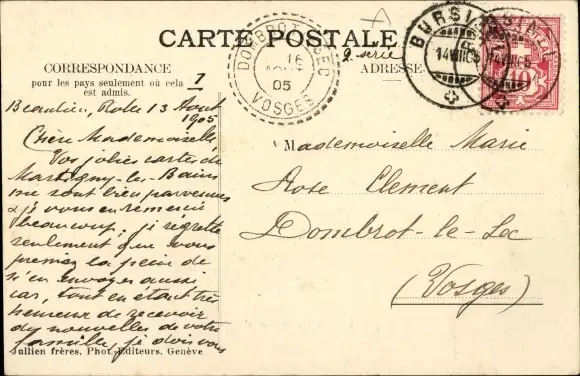 CARTE POSTALE
2 série
CORRESPONDANCE
pour les pays seulement où cela
est admis.
1
ADRESSE
DOMBROT-LE-SEC
16
AOUT
05
VOSGES
BURSINS
14 VIII 05
10
Beaulieu, Rolle 13 Août
1905
Chère Mademoiselle,
Vos jolies cartes de
Martigny-les-Bains
me sont bien parvenues
& je vous en remercie
beaucoup; je régrette
seulement que vous
preniez la peine de
m'en envoyer aussi
car, tout en étant très
heureuse de recevoir
des nouvelles de votre
famille, je dois vous
Mademoiselle Marie
Rose Clement
Dombrot-le-Sec
(Vosges)
Jullien frères, Phot.-Editeurs, Genève